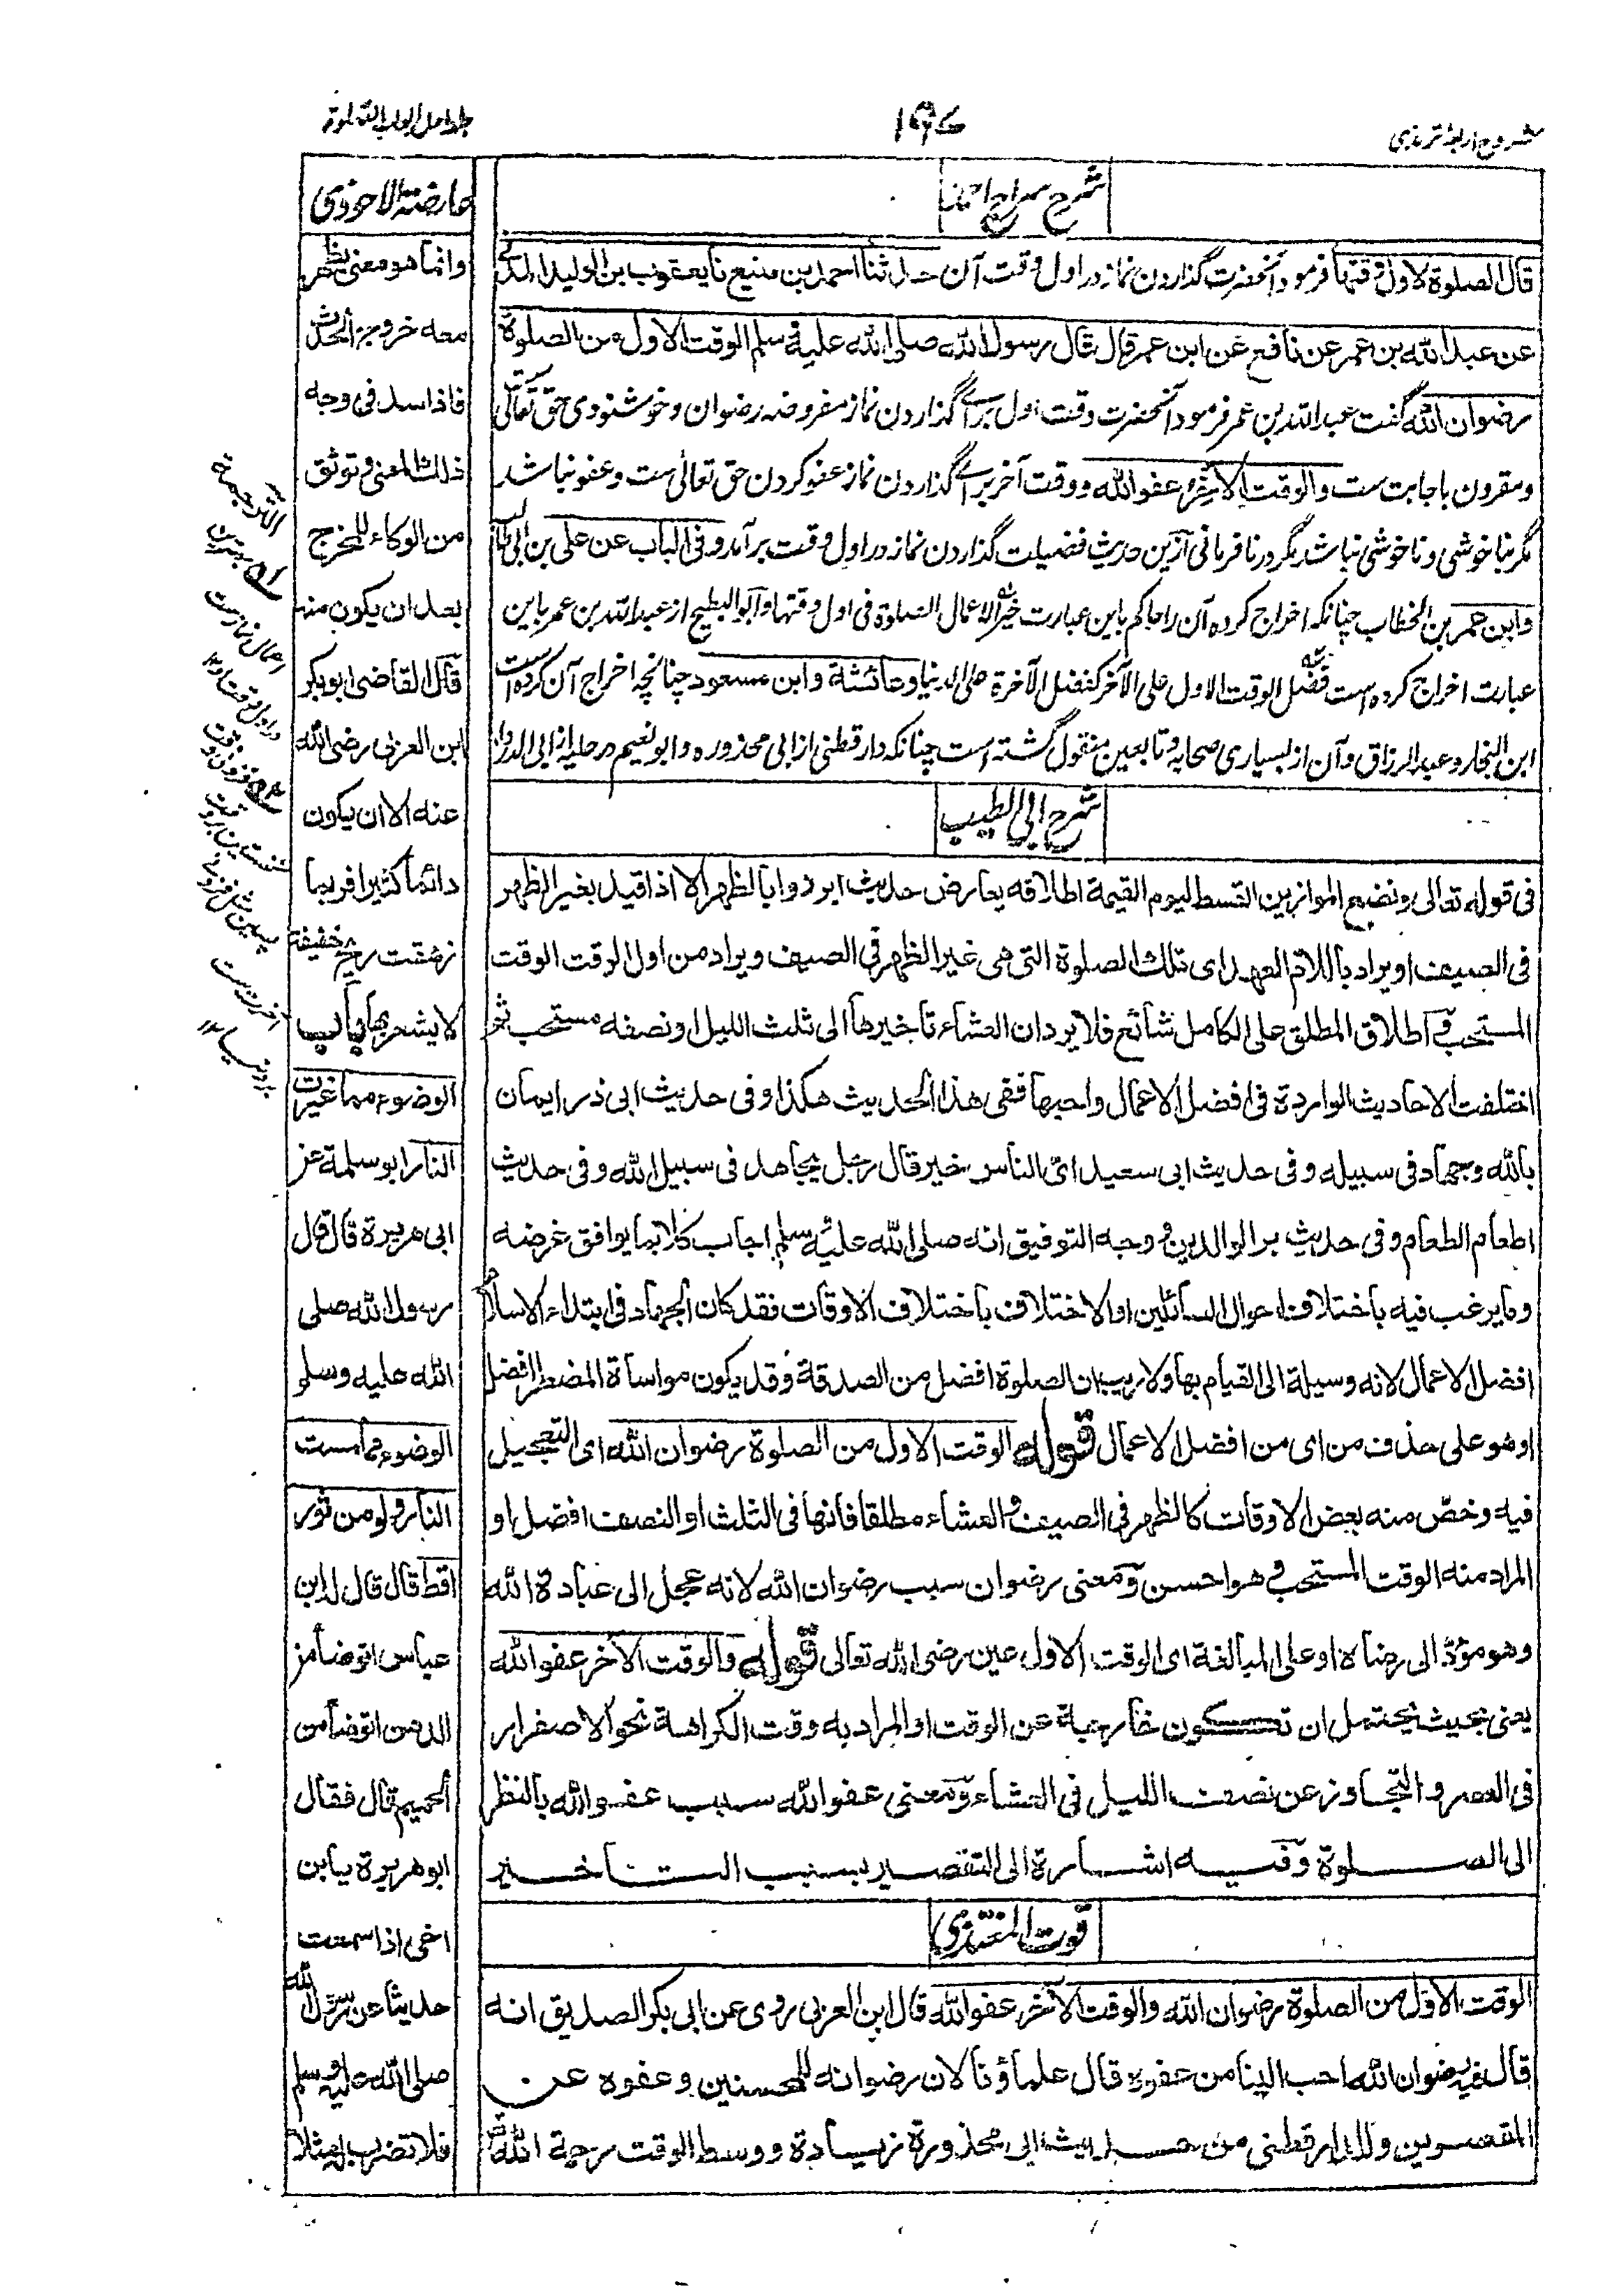 شروح اربعۂ ترمذی
۱۹۷
جلد اول ابواب الصلوة
شرح سراج احمد
قال الصلوة لاول وقتها فرمود آنحضرت گذاردن نماز در اول وقت آن حدثنا احمد بن منیع نا یعقوب بن الولید المدنی
عن عبد الله بن عمر عن نافع عن ابن عمر قال قال رسول الله صلی الله علیه وسلم الوقت الاول من الصلوة
رضوان الله گفت عبد الله بن عمر فرمود آنحضرت وقت اول برائے گذاردن نماز مفروضه رضوان و خوشنودی حق تعالی
و مقرون باجابت ست والوقت الآخر عفو الله و وقت آخر برائے گذاردن نماز عفو کردن حق تعالی ست و عفو نباشد
مگر بناخوشی و ناخوشی نباشد مگر در نافرمانی ازین حدیث فضیلت گذاردن نماز در اول وقت برآمد وفی الباب عن علی بن ابی طالب
وابن عمر بن الخطاب چنانکه اخراج کرده آن را حاکم باین عبارت خیر الاعمال الصلوة فی اول وقتها و ابو البطیح از عبد الله بن عمر باین
عبارت اخراج کرده است فضل الوقت الاول علی الآخر کفضل الآخرة علی الدنیا وعائشة وابن مسعود چنانچه اخراج آن کرده است
ابن النجار و عبد الرزاق و آن از بسیاری صحابه و تابعین منقول گشته است چنانکه دارقطنی از ابی محذوره و ابو نعیم در حلیه از ابی الدرداء
شرح ابی الطیب
فی قوله تعالی ونضع الموازین القسط لیوم القیمة اطلاقه یعارض حدیث ابردوا بالظهر الا اذا قید بغیر الظهر
فی الصیف او یراد باللام العهد ای تلك الصلوة التی هی غیر الظهر فی الصیف ویراد من اول الوقت الوقت
المستحب واطلاق المطلق علی الکامل شائع فلا یرد ان العشاء تاخیرها الی ثلث اللیل او نصفه مستحب ثم
اختلفت الاحادیث الواردة فی افضل الاعمال واحبها ففی هذا الحدیث هکذا وفی حدیث ابی ذر ایمان
بالله وجهاد فی سبیله وفی حدیث ابی سعید ای الناس خیر قال رجل یجاهد فی سبیل الله وفی حدیث
اطعام الطعام وفی حدیث بر الوالدین ووجه التوفیق انه صلی الله علیه وسلم اجاب کلا بما یوافق غرضه
وما یرغب فیه باختلاف احوال السائلین او الاختلاف باختلاف الاوقات فقد کان الجهاد فی ابتداء الاسلام
افضل الاعمال لانه وسیلة الی القیام بها ولا ریب ان الصلوة افضل من الصدقة وقد یکون مواساة المضطر افضل
او هو علی حذف من ای من افضل الاعمال قوله الوقت الاول من الصلوة رضوان الله ای التعجیل
فیه وخص منه بعض الاوقات کالظهر فی الصیف والعشاء مطلقا فانها فی الثلث او النصف افضل او
المراد منه الوقت المستحب وهو احسن ومعنی رضوان سبب رضوان الله لانه عجل الی عبادة الله
وهو مؤد الی رضاه او علی المبالغة ای الوقت الاول عین رضی الله تعالی قوله والوقت الآخر عفو الله
یعنی بحیث یحتمل ان تکون خارجیة عن الوقت او المراد به وقت الکراهة نحو الاصفرار
فی العصر والتجاوز عن نصف اللیل فی العشاء ومعنی عفو الله سبب عفو الله بالنظر
الی الصلوة وفیه اشارة الی التقصیر بسبب التاخیر
قوت المغتذی
الوقت الاول من الصلوة رضوان الله والوقت الآخر عفو الله قال ابن العربی روی عن ابی بکر الصدیق انه
قال فیه رضوان الله احب الینا من عفوه قال علماؤنا لان رضوانه للمحسنین وعفوه عن
المقصرین وللدارقطنی من حدیث ابی محذورة زیادة ووسط الوقت رحمة الله
عارضة الاحوذی
وانما هو معنی یظهر
معه خروج الحدث
فاذا سد فی وجه
ذلك المعنی وتوثق
من الوکاء للمخرج
بعد ان یکون منه
قال القاضی ابو بکر
ابن العربی رضی الله
عنه الا ان یکون
دائما کثیرا فربما
زهقت ریح خفیفة
لا یشعر بها باب
الوضوء مما غیرت
النار ابو سلمة عن
ابی هریرة قال قال
رسول الله صلی
الله علیه وسلم
الوضوء مما مست
النار ولو من ثور
اقط قال قال له ابن
عباس اتوضأ من
الدهن اتوضأ من
الحمیم قال فقال
ابو هریرة یا ابن
اخی اذا سمعت
حدیثا عن رسول الله
صلی الله علیه وسلم
فلا تضرب له مثلا
الترجمة
بهترین
اعمال نماز ست
در اول وقت او ۱۲